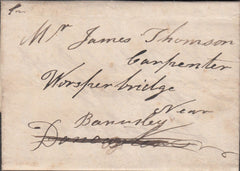 Mr James Thomson
Carpenter
Worsperbridge
Near
Barnsley